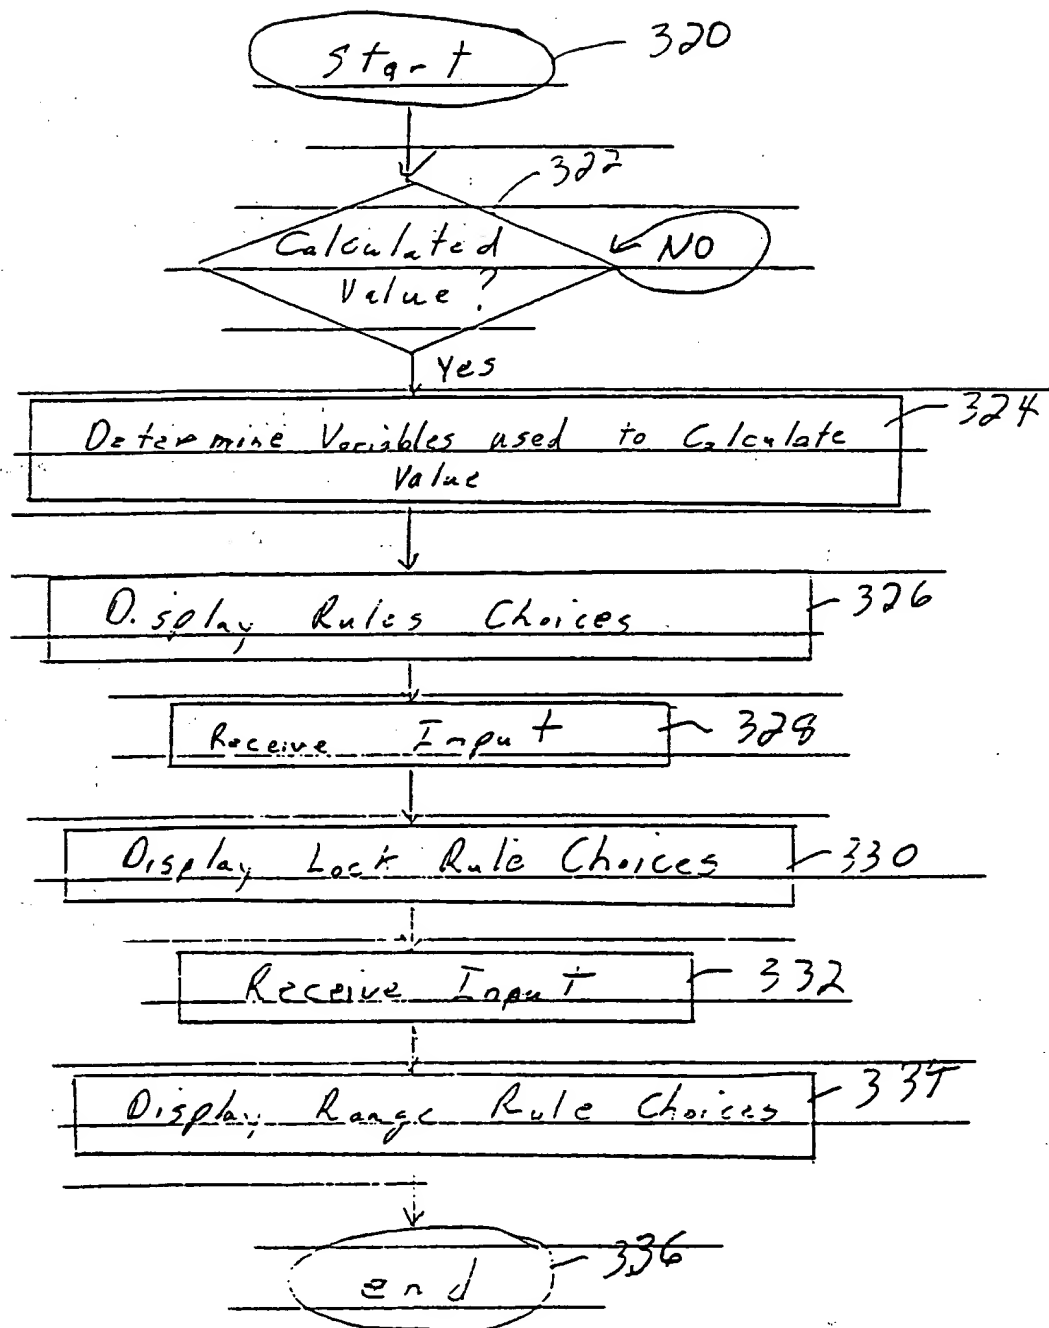 Start 320
322
Calculated NO
Value?
Yes
324
Determine Variables used to Calculate
Value
Display Rules Choices 326
Receive Input 328
Display Lock Rule Choices 330
Receive Input 332
Display Range Rule Choices 334
end 336